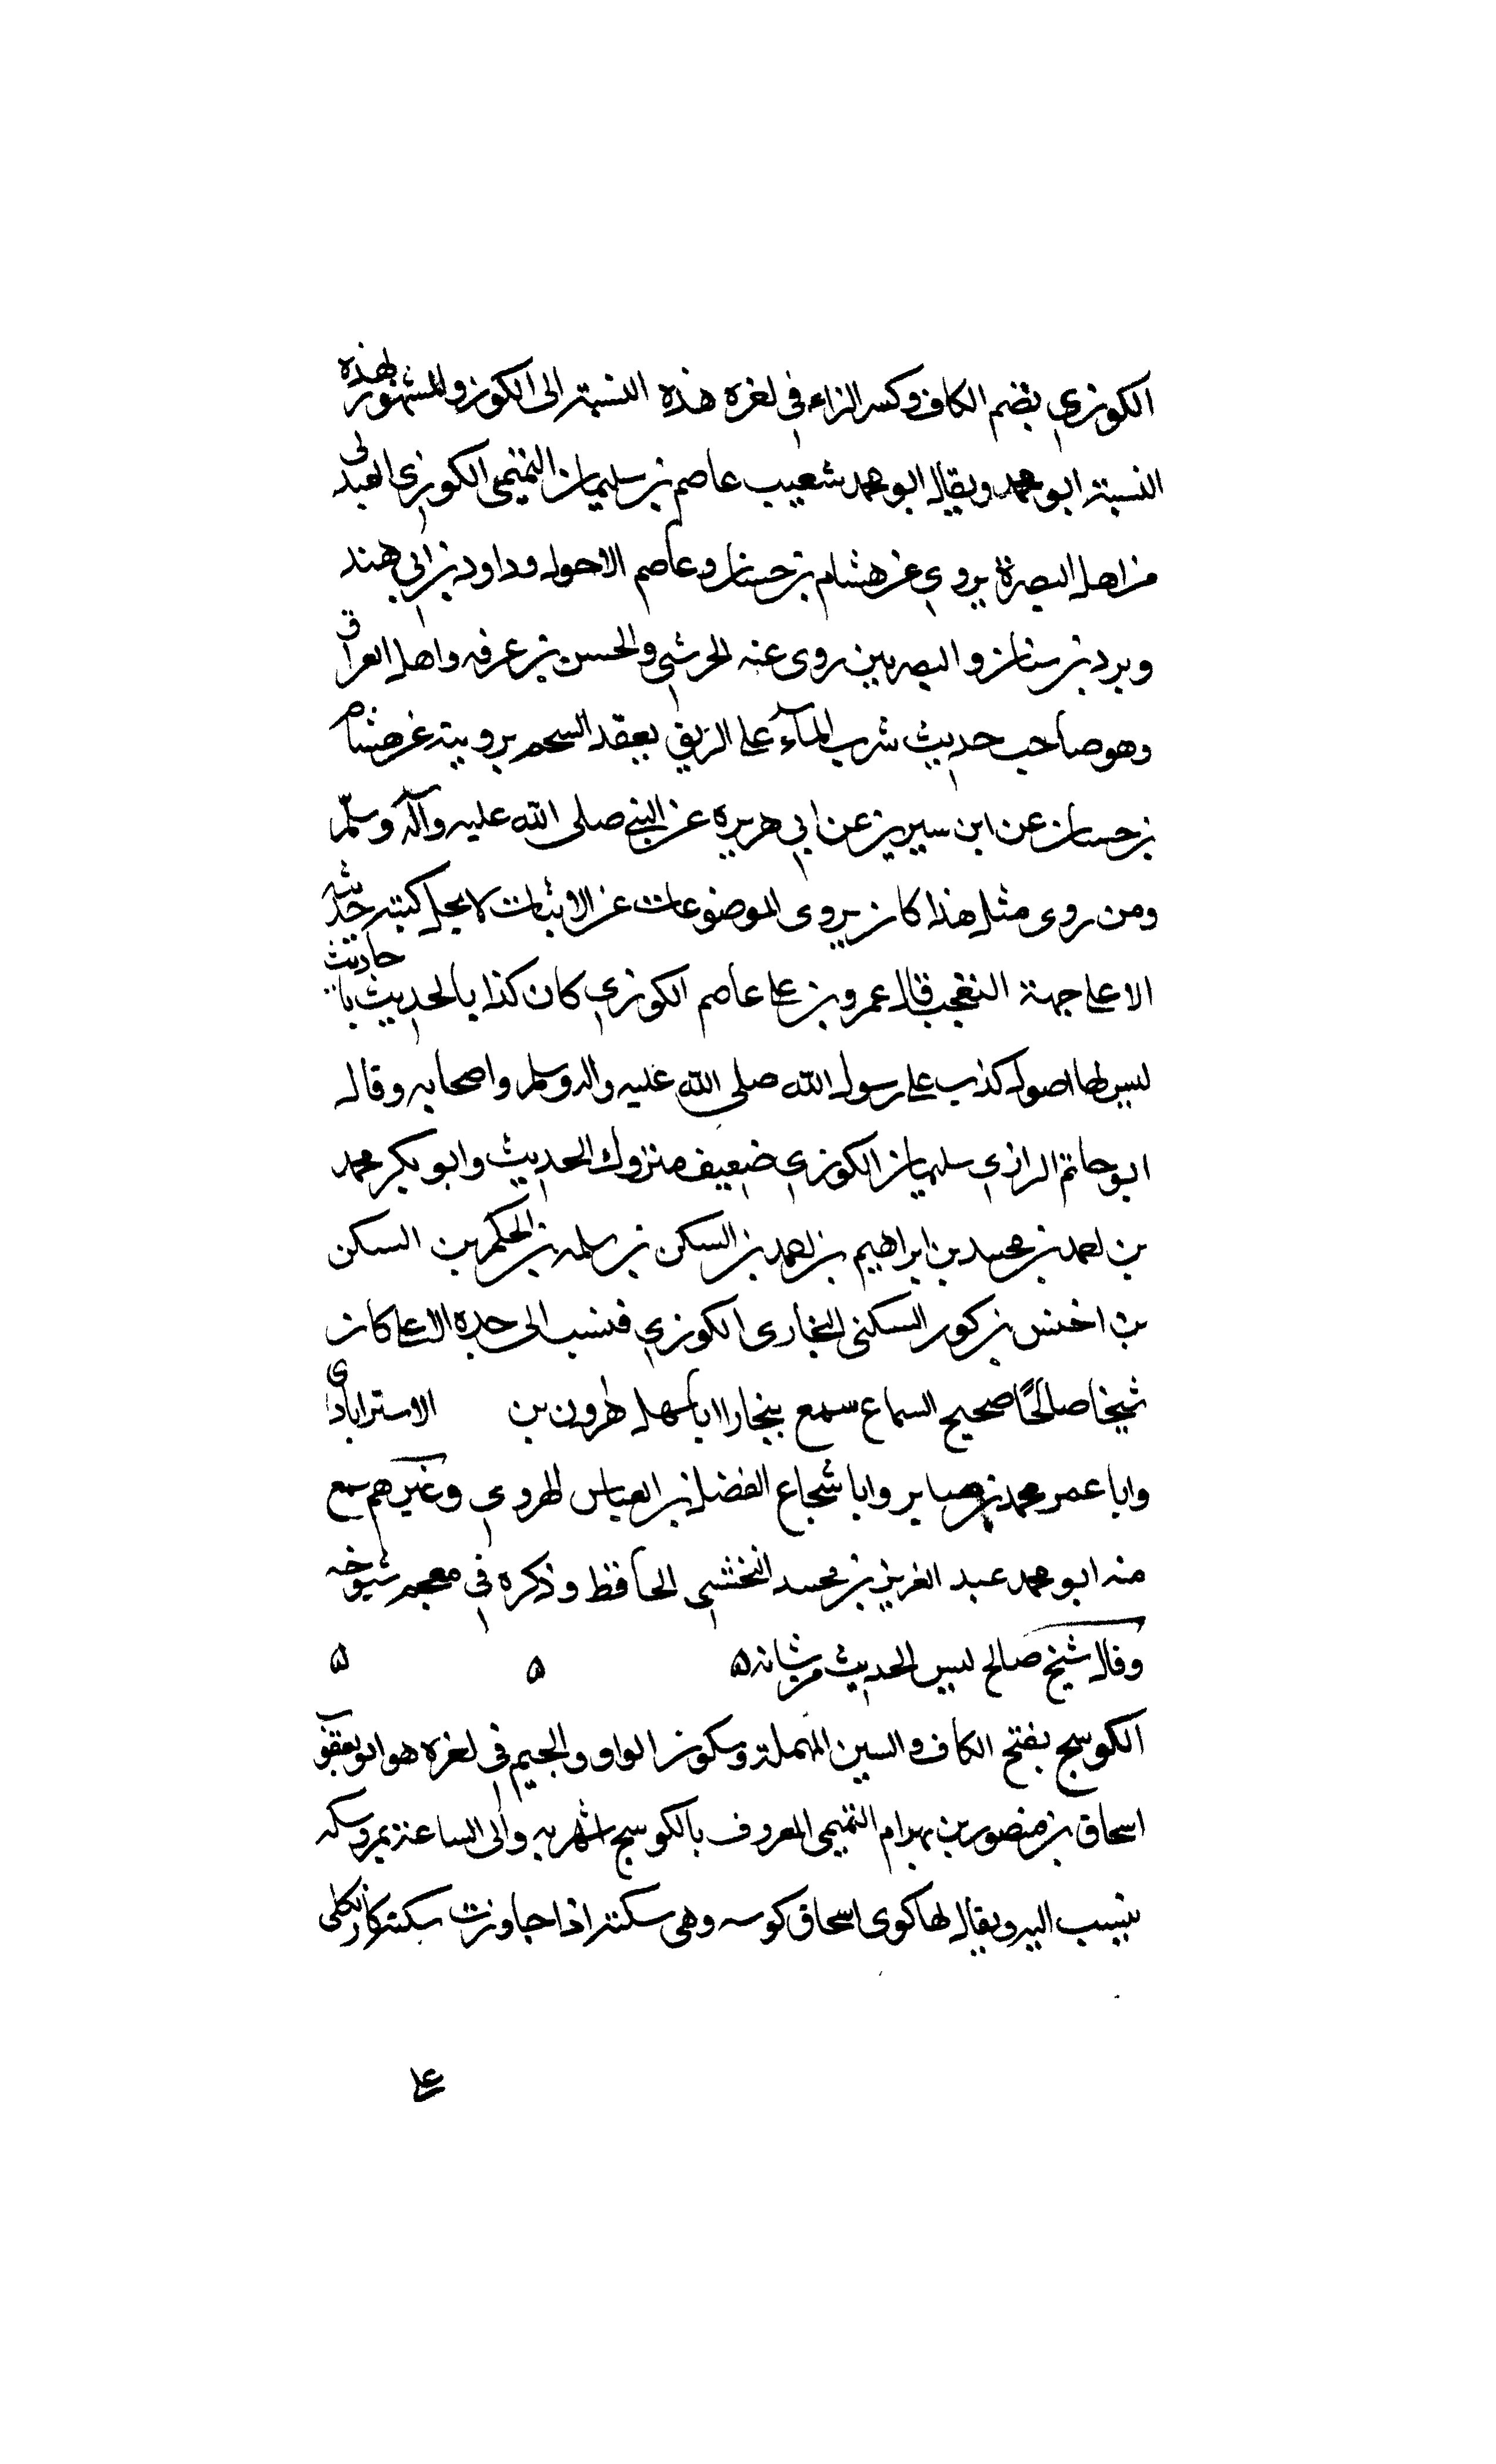 الكوزي بضم الكاف وكسر الزاء في اخره هذه النسبة الى الكوز والمشهور بهذه
النسبة ابو محمد ويقال ابو محمد شعيب عاصم بن سليمان التميمى الكوزي العبدى
من اهل البصرة يروي عن هشام بن حسان وعاصم الاحول وداود بن ابي هند
وبرد بن سنان والبصريين روى عنه الحرشي والحسن بن عرفه واهل العراق
وهو صاحب حديث شرب المآء على الريق يعقد الشحم يرويه عن هشام
بن حسان عن ابن سيرين عن ابي هريره عن النبي صلى الله عليه وآله وسلم
ومن روى مثل هذا كان يروى الموضوعات عن الاثبات لا يحل كتبة حديثه
الا على جهة التعجب قال عمرو بن على عاصم الكوزي كان كذابا لحديث باحاديث
ليس لها اصول كذب على رسول الله صلى الله عليه واله وسلم واصحابه وقال
ابو حاتم الرازي سليمان الكوزي ضعيف متروك الحديث وابو بكر محمد
بن احمد بن محمد بن ابراهيم بن احمد بن السكن بن سلمه بن الحكم بن السكن
بن اخنس بن كوز السكنى البخارى الكوزي فنسب الى جده الاعلى كان
شيخا صالحًا صحيح السماع سمع ببخارا ابا سهل هرون بن الاستراباذى
وابا عمر محمد بن صابر وابا شجاع الفضل بن العباس الهروي وغيرهم سمع
منه ابو محمد عبد العزيز بن محمد النخشبي الحافظ وذكره في معجم شيوخه
وقال شيخ صالح ليس الحديث من شانه ۵ ۵ ۵
الكوسج بفتح الكاف والسين المهملة وسكون الواو والجيم في اخره هو ابو يعقوب
اسحاق بن منصور بن بهرام التميمى المعروف بالكوسج اشهر به والى الساعة بمرو سكة
ينسب اليه ويقال لها كوى اسحاق كوسه وهى سكة اذا جاوزت سكة كارنكلى
على